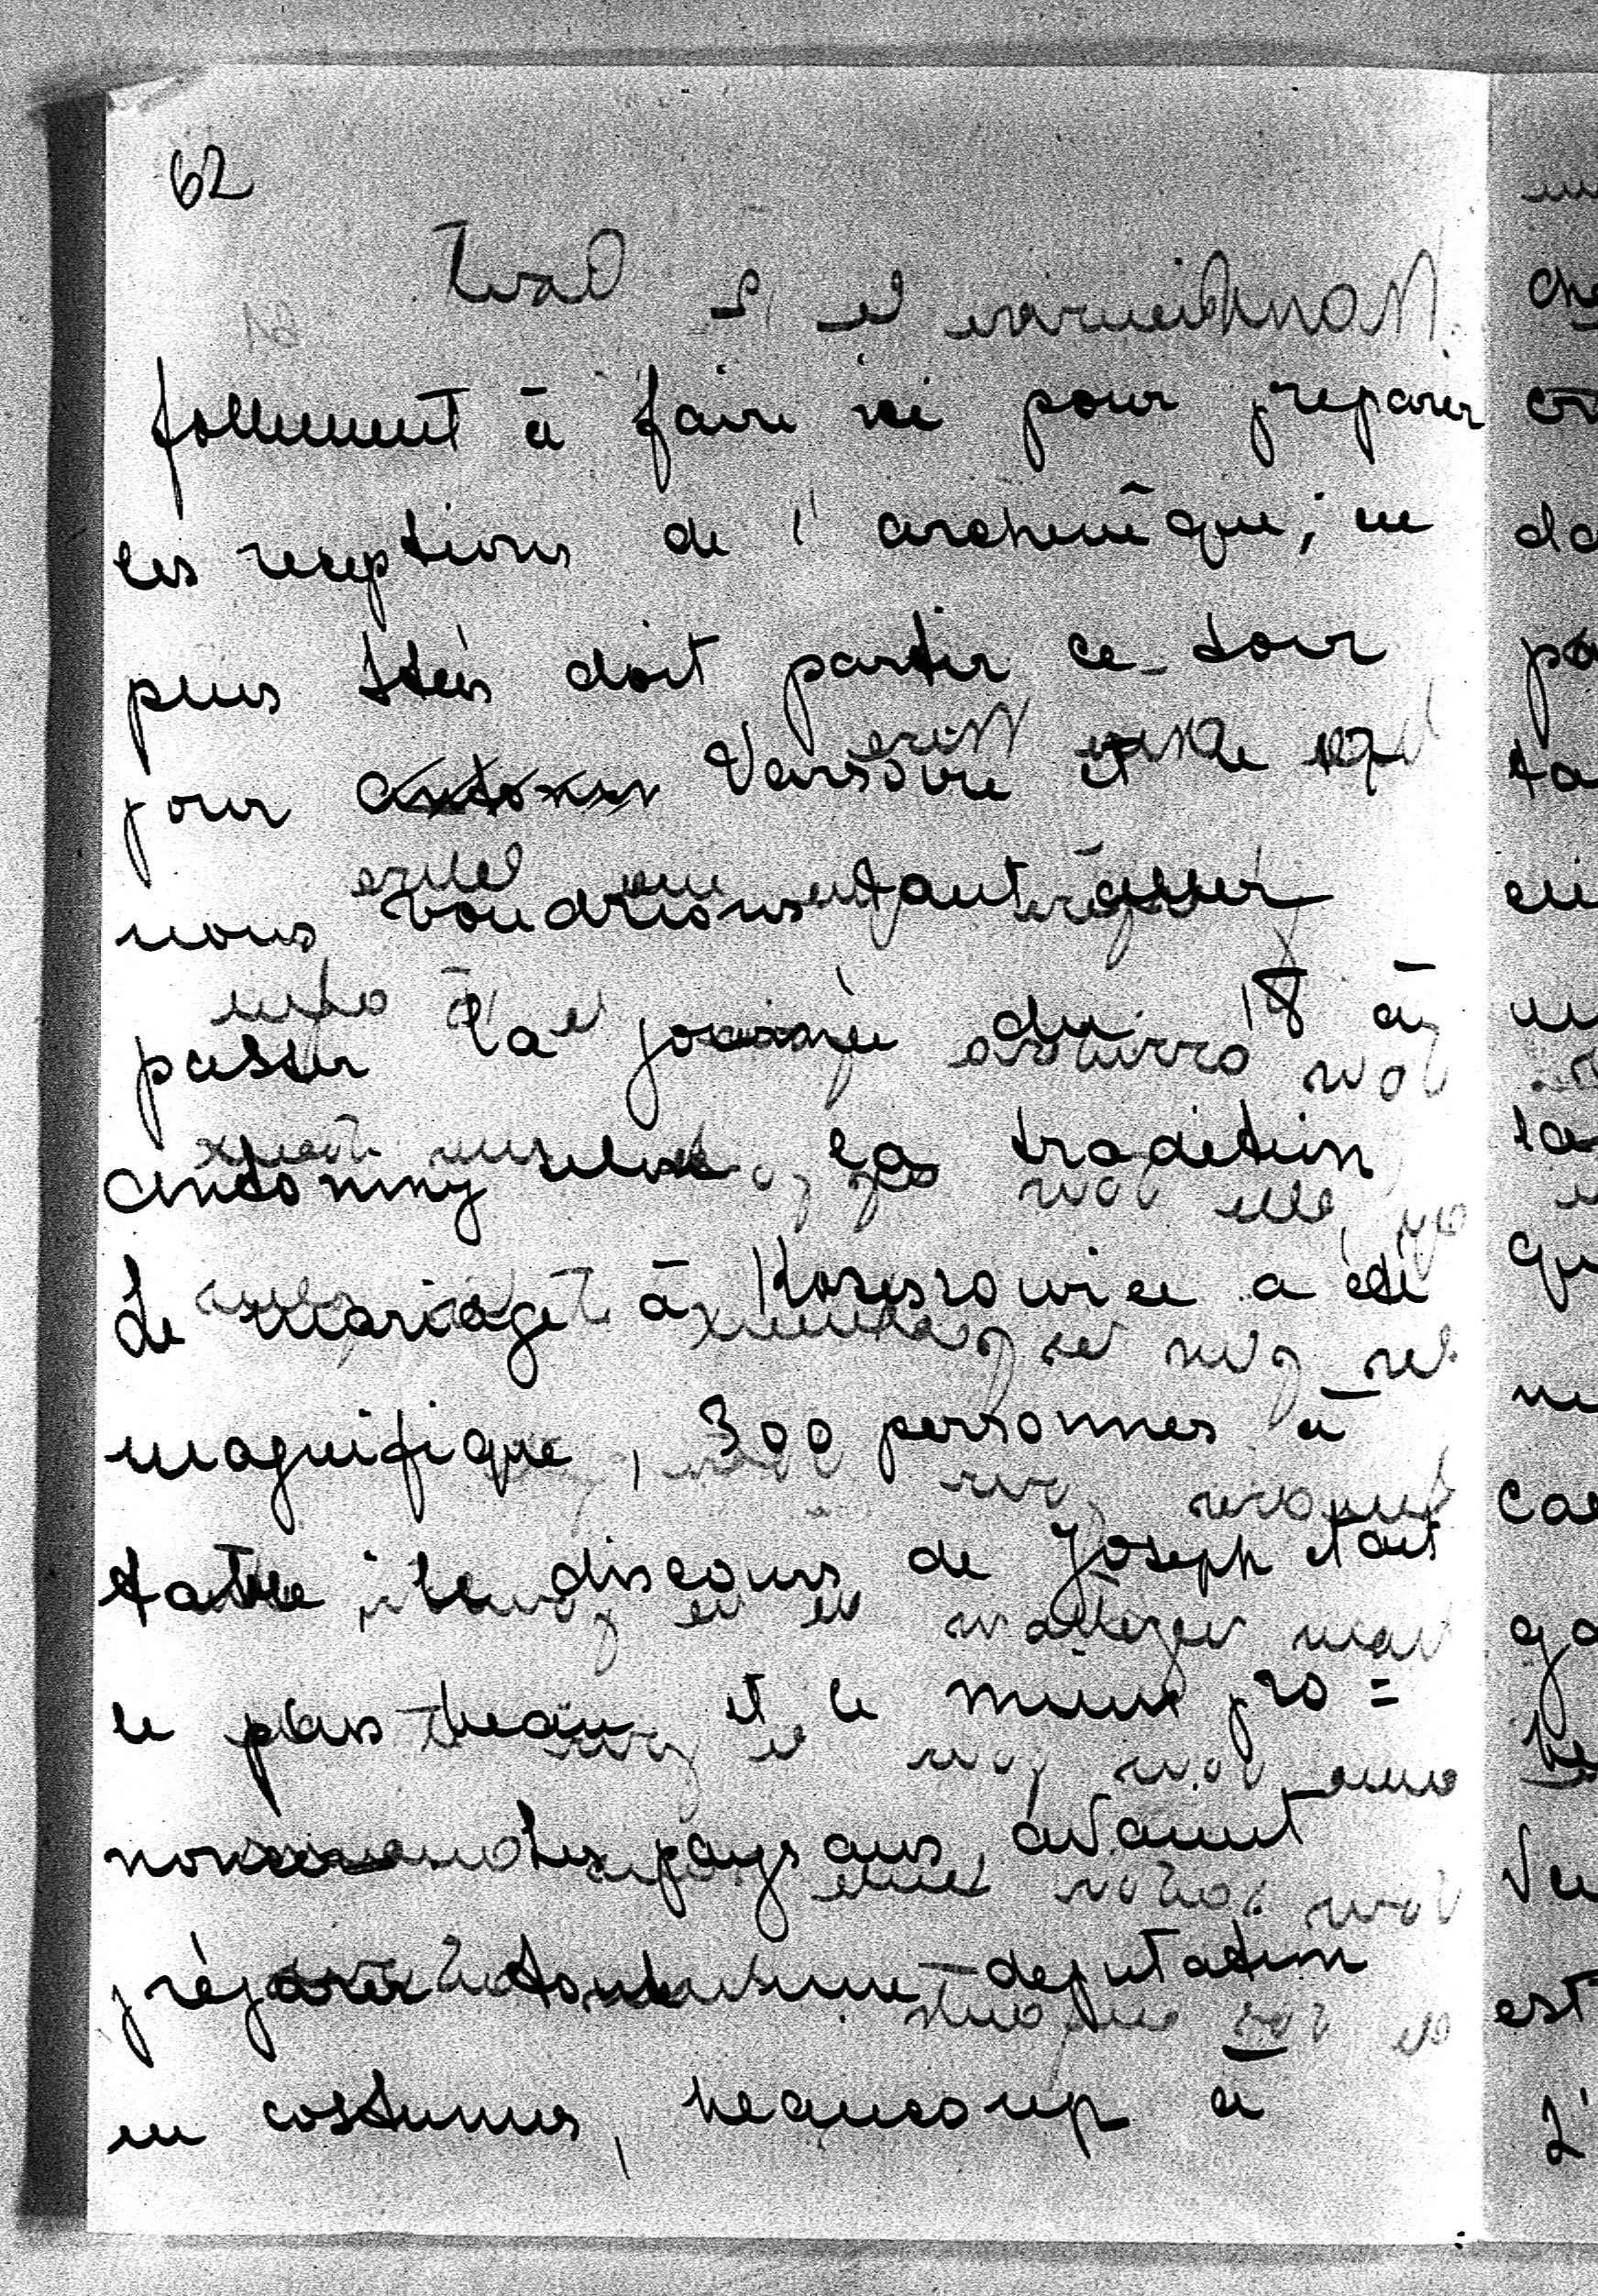 62
follement à faire ici pour preparer
les receptions de l'archevêque, en
plus Stas doit partir ce sour
jour Varsovie et
nous voudrions tant aller
passer la journée du 18 à
Antoniny selon la tradition
Le mariage à a été
magnifique, 300 personnes à
table, le discours de Joseph était
le plus beau et le mieux pro=
noncer Les paysans, avaient
préparer toute une deputation
en costumes, beaucoup à